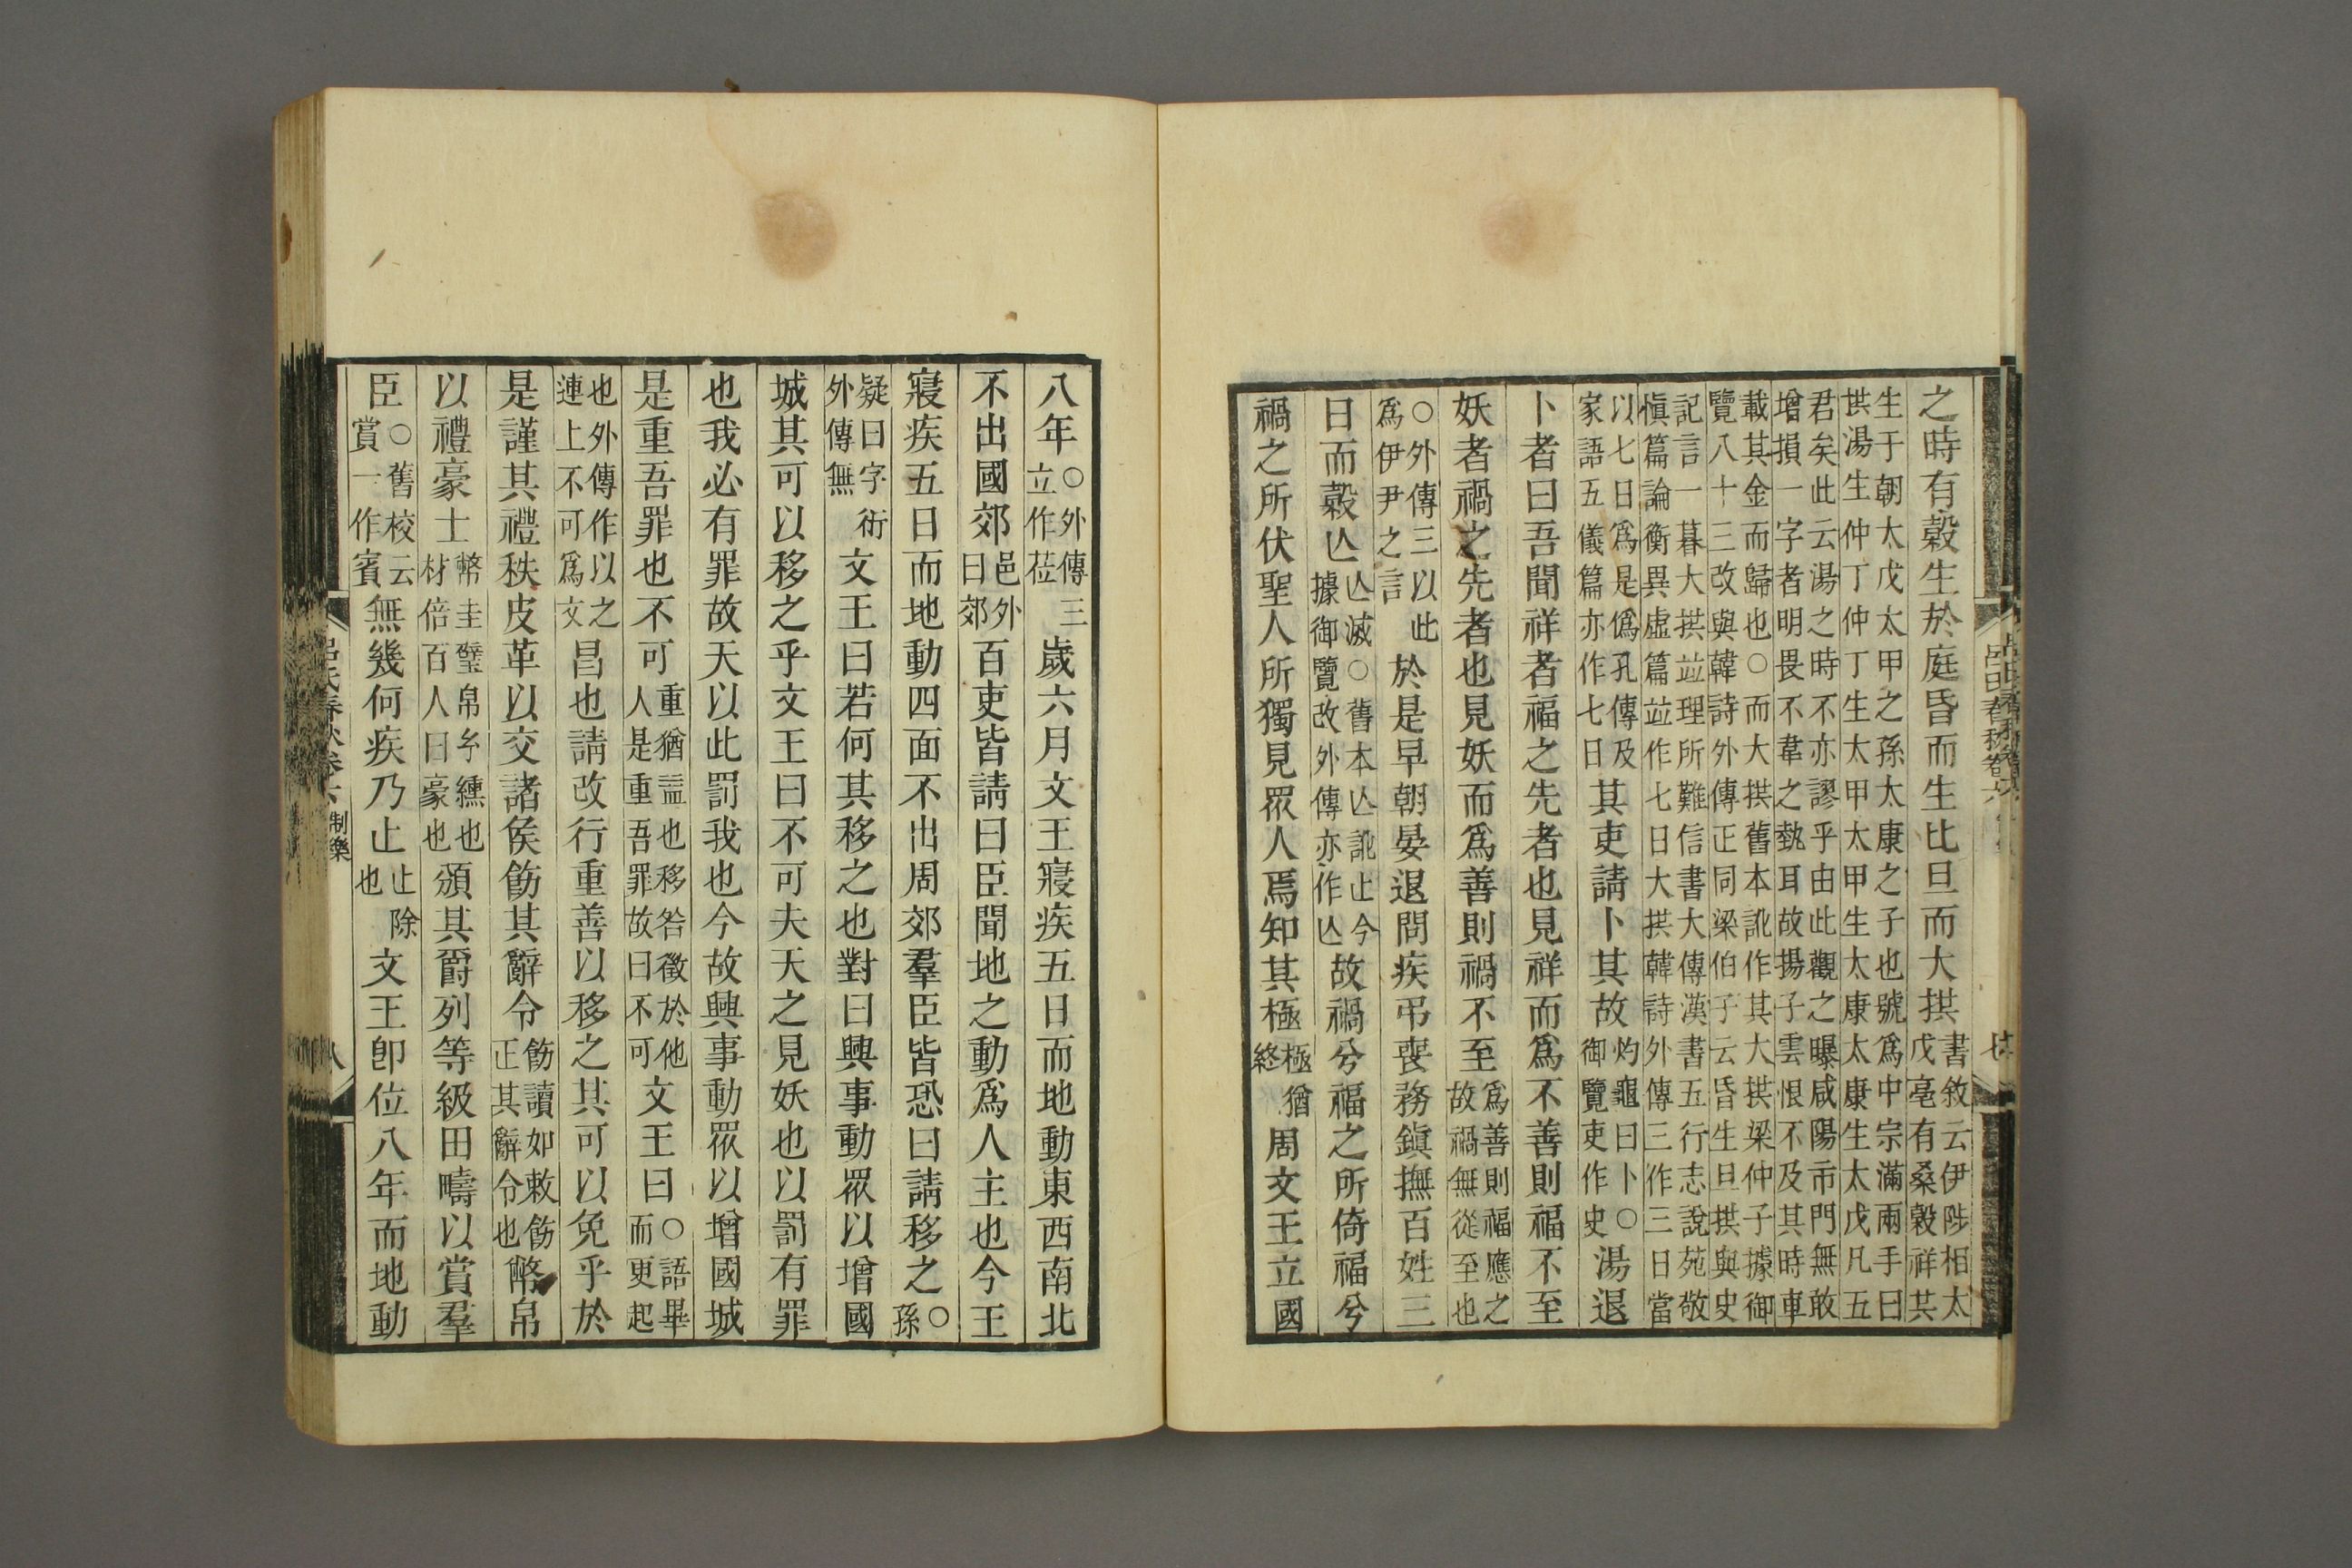 之時有榖生於庭昏而生比旦而大拱書敘云伊陟相太戊亳有桑榖祥共
生于朝太戊太甲之孫太康之子也號爲中宗滿兩手曰拱湯生仲丁仲丁生太甲太甲生太康太康生太戊凡五
君矣此云湯之時不亦謬乎由此觀之曝咸陽市門無敢增損一字者明畏不韋之埶耳故揚子雲恨不及其時車
載其金而歸也○而大拱舊本訛作其大拱梁仲子據御覽八十三改與韓詩外傳正同梁伯子云昏生旦拱與史
記言一暮大拱竝理所難信書大傳漢書五行志說苑敬愼篇論衡異虛篇竝作七日大拱韓詩外傳三作三日當
以七日爲是僞孔傳及家語五儀篇亦作七日其吏請卜其故灼龜曰卜○御覽吏作史湯退
卜者曰吾聞祥者福之先者也見祥而爲不善則福不至
妖者禍之先者也見妖而爲善則禍不至爲善則福應之故禍無從至也
○外傳三以此爲伊尹之言於是早朝晏退問疾弔喪務鎭撫百姓三
日而榖亾亾滅○舊本亾訛止今據御覽改外傳亦作亾故禍兮福之所倚福兮
禍之所伏聖人所獨見眾人焉知其極極猶終周文王立國
八年○外傳立作莅三歲六月文王寢疾五日而地動東西南北
不出國郊邑外曰郊百吏皆請曰臣聞地之動爲人主也今王
寢疾五日而地動四面不出周郊羣臣皆恐曰請移之○孫
疑曰字衍外傳無文王曰若何其移之也對曰興事動眾以增國
城其可以移之乎文王曰不可夫天之見妖也以罰有罪
也我必有罪故天以此罰我也今故興事動眾以增國城
是重吾罪也不可重猶益也移咎徵於他人是重吾罪故曰不可文王曰○語畢而更起
也外傳作以之連上不可爲文昌也請改行重善以移之其可以免乎於
是謹其禮秩皮革以交諸侯飭其辭令飭讀如敕飭正其辭令也幣帛
以禮豪士幣圭璧帛玄纁也材倍百人曰豪也頒其爵列等級田疇以賞羣
臣○舊校云賞一作賓無幾何疾乃止止除也文王卽位八年而地動
呂氏春秋卷六 制樂 八